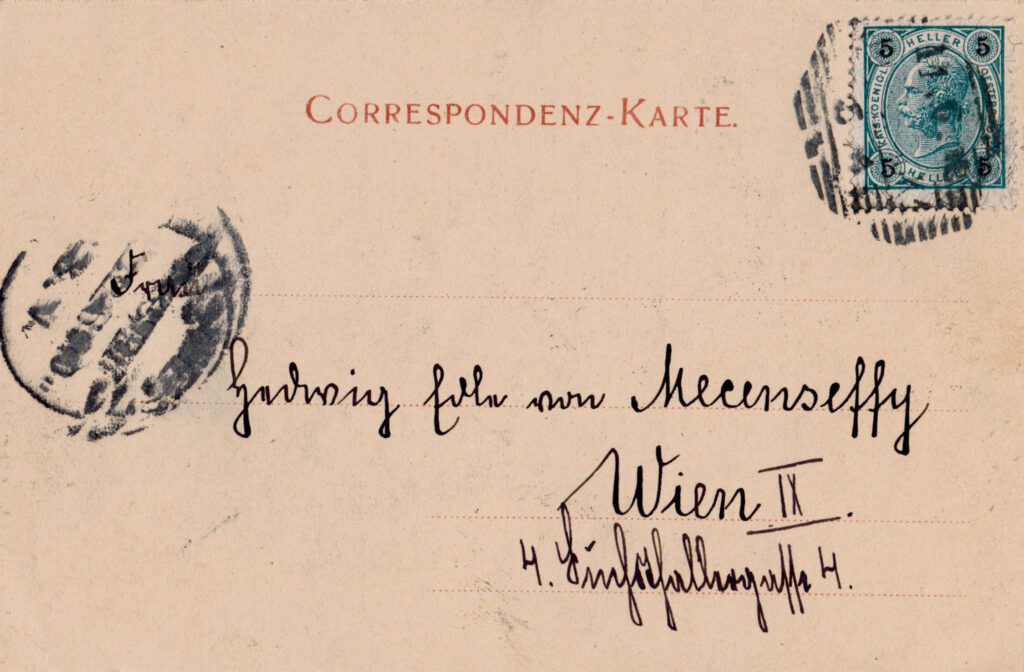 CORRESPONDENZ-KARTE.
5 HELLER 5
5 HELLER 5
Frau
Hedwig Edle von Mecenseffy
Wien IX.
4. Fuchsthallergasse 4.